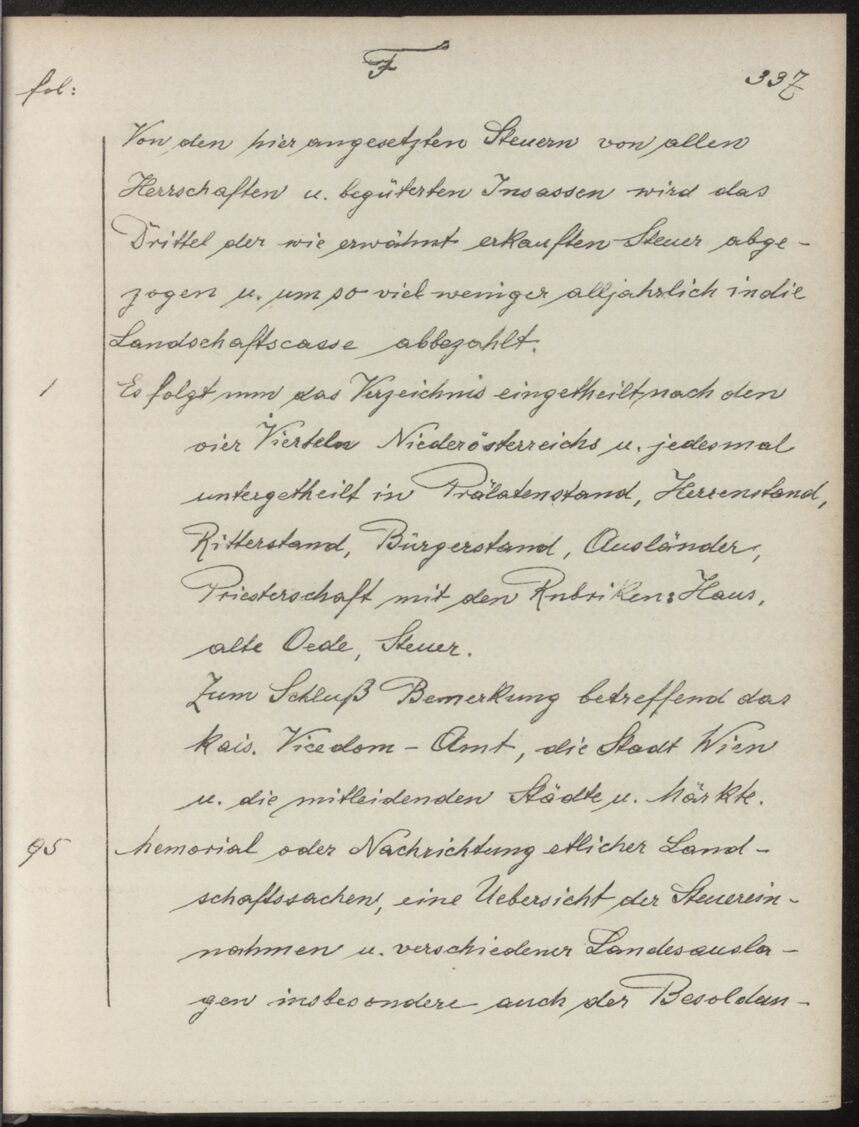 F
337
fol:
Von den hier angesetzten Steuern von allen
Herrschaften u. begüterten Insassen wird das
Drittel der wie erwähnt erkauften Steuer abge-
zogen u. um so viel weniger alljahrlich in die
Landschaftscasse abbezahlt.
1 Es folgt nun das Verzeichnis eingetheilt nach den
vier Vierteln Niederösterreichs u. jedesmal
untergetheilt in Prälatenstand, Herrenstand,
Ritterstand, Bürgerstand, Ausländer,
Priesterschaft mit den Rubriken: Haus,
alte Oede, Steuer.
Zum Schluß Bemerkung betreffend das
kais. Vicedom-Amt, die Stadt Wien
u. die mitleidenden Städte u. Märkte.
95 Memorial oder Nachrichtung etlicher Land-
schaftssachen, eine Uebersicht der Steuerein-
nahmen u. verschiedener Landesausla-
gen insbesondere auch der Besoldun-